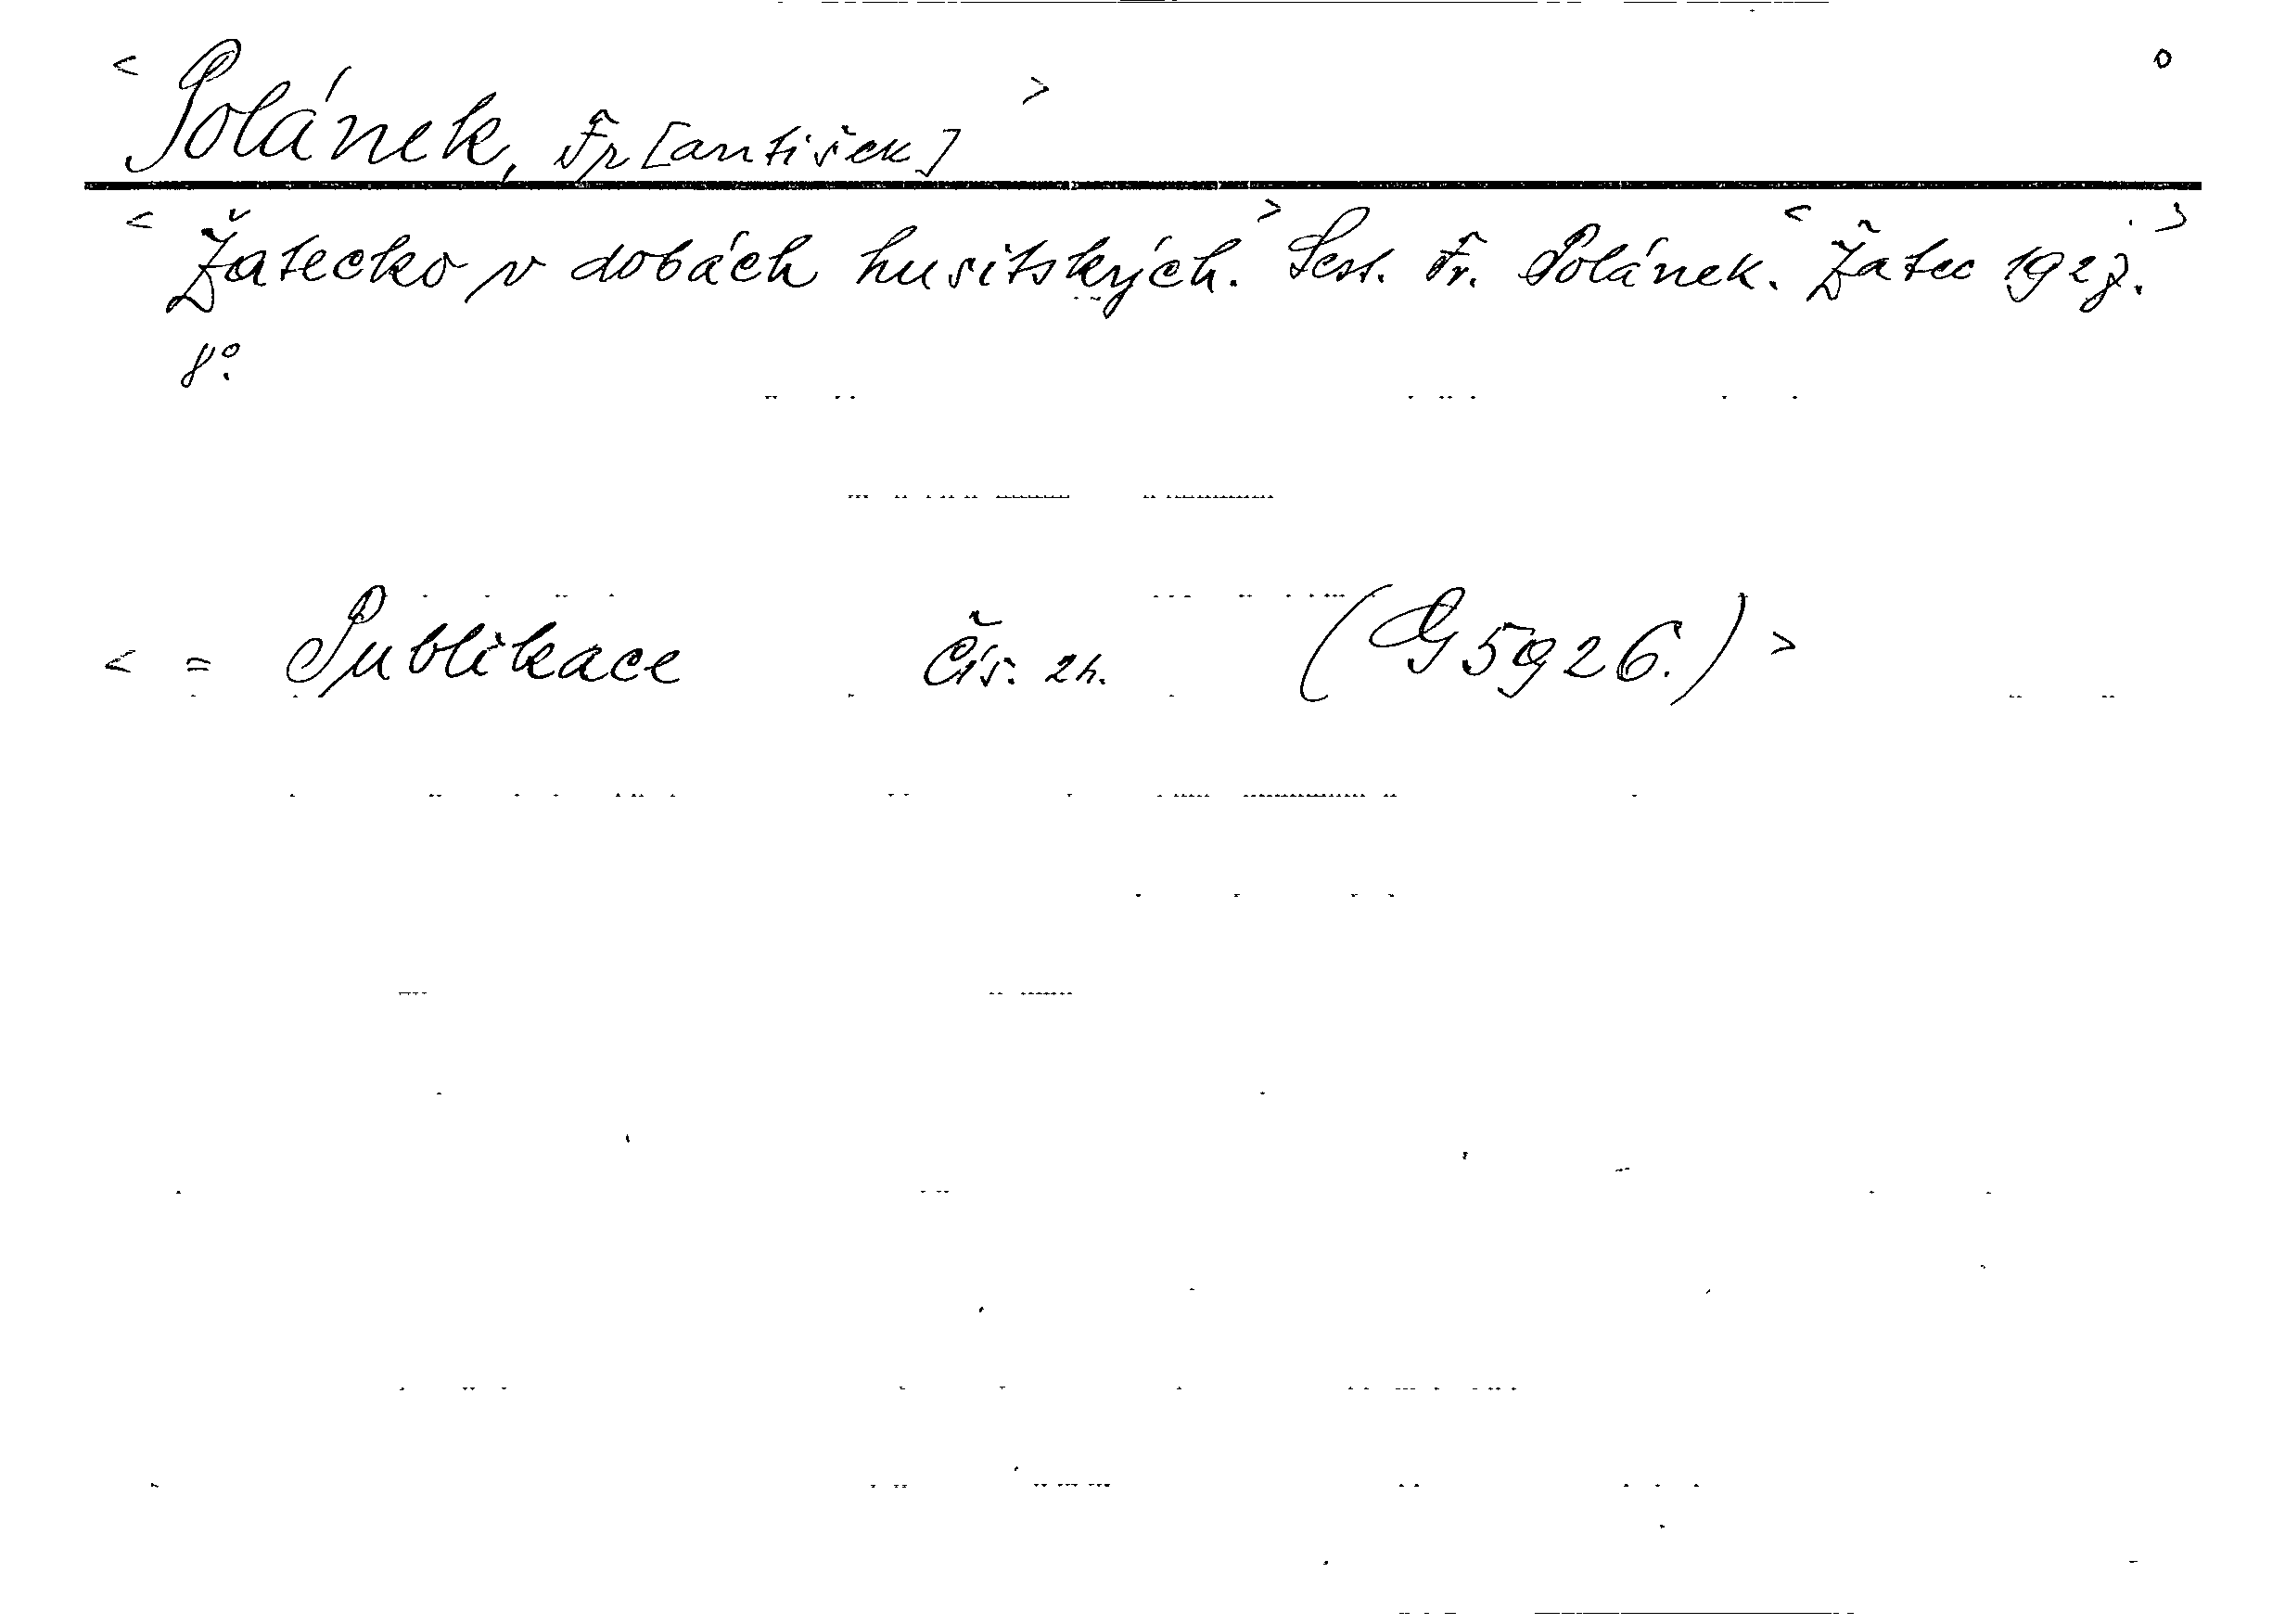 < Polánek, Fr[antišek] > o
< Žatecko v dobách husitských. > Sest. Fr. Polánek. < Žatec 1927. >
8°.
< = Publikace Čís. 24. (G 5926.) >